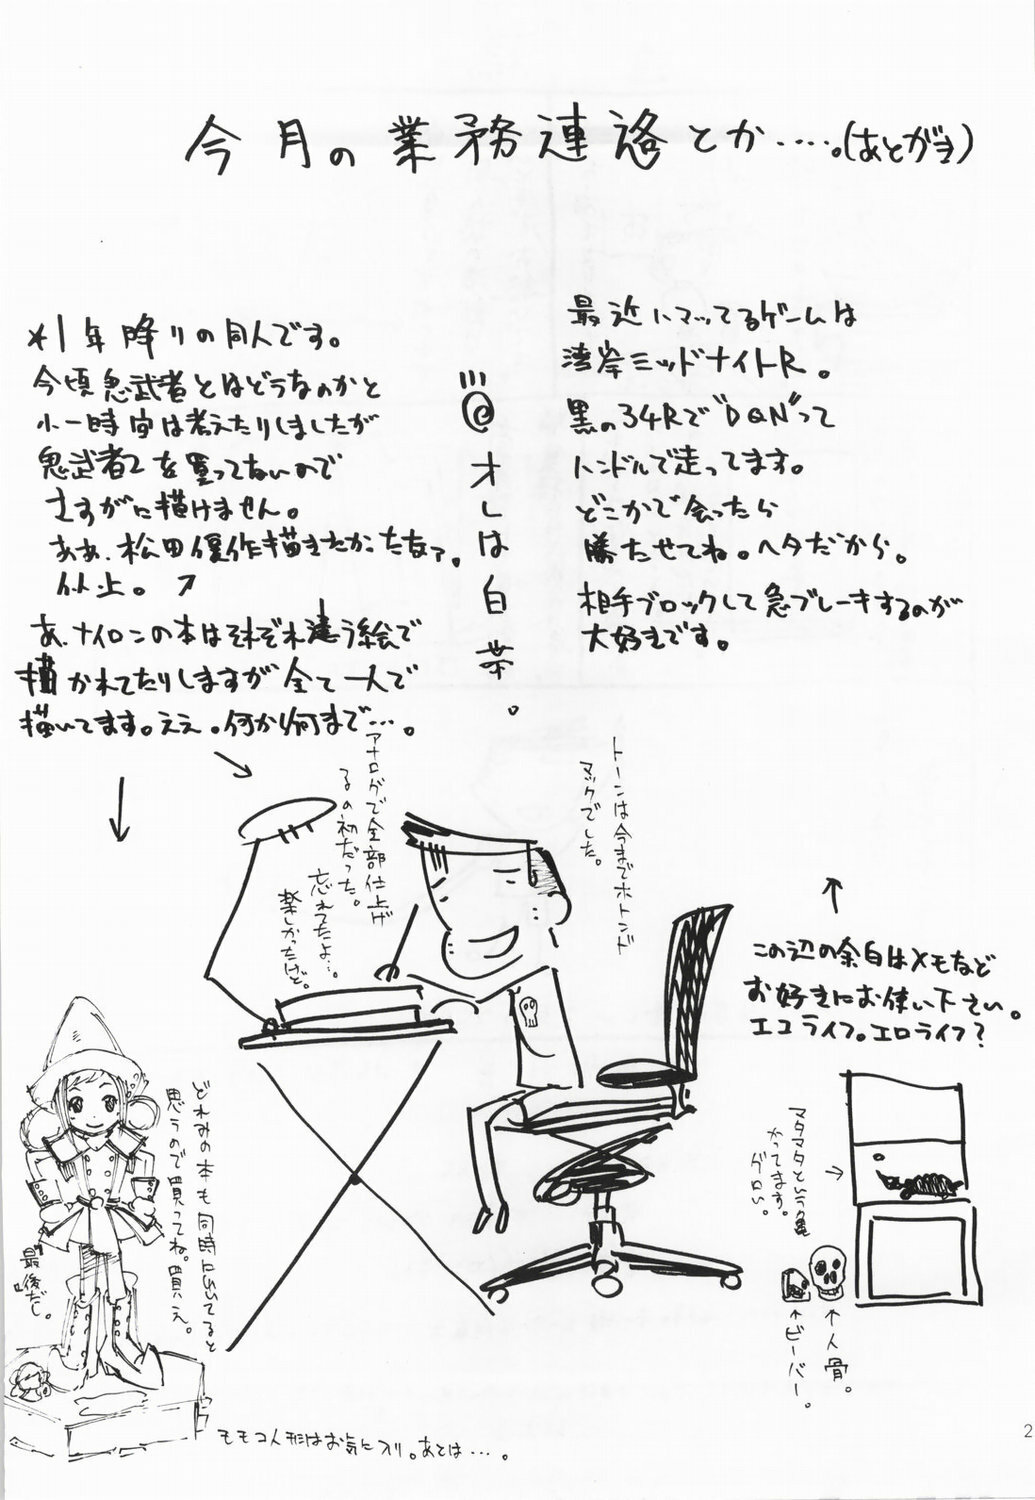 今月の業務連絡とか‥‥。(あとがき)
*1年降りの同人です。
今頃鬼武者とはどうなのかと
小一時間は考えたりしましたが
鬼武者2を買ってないので
さすがに描けません。
ああ、松田優作描きたかったなァ。
以上。↗
あ、ナイロンの本はそれぞれ違う絵で
描かれてたりしますが全て一人で
描いてます。ええ。何から何まで…。
オレは白帯。
最近ハマッてるゲームは
湾岸ミッドナイトR。
黒の34Rで"DQN"って
ハンドルで走ってます。
どこかで会ったら
勝たせてね。ヘタだから。
相手ブロックして急ブレーキするのが
大好きです。
トーンは今までホトンド
マックでした。
アナログで全部仕上げ
るの初だった。
忘れてたよ…。
楽しかったけど。
この辺の余白はメモなど
お好きにお使い下さい。
エコライフ。エロライフ?
マタマタという亀
かってます。
グロい。
→
↑人骨。
↑ビーバー。
どれみの本も同時にかいてると
思うので買ってね。買え。
"最後だし。"
モモコ人形はお気に入り。あとは…。
2